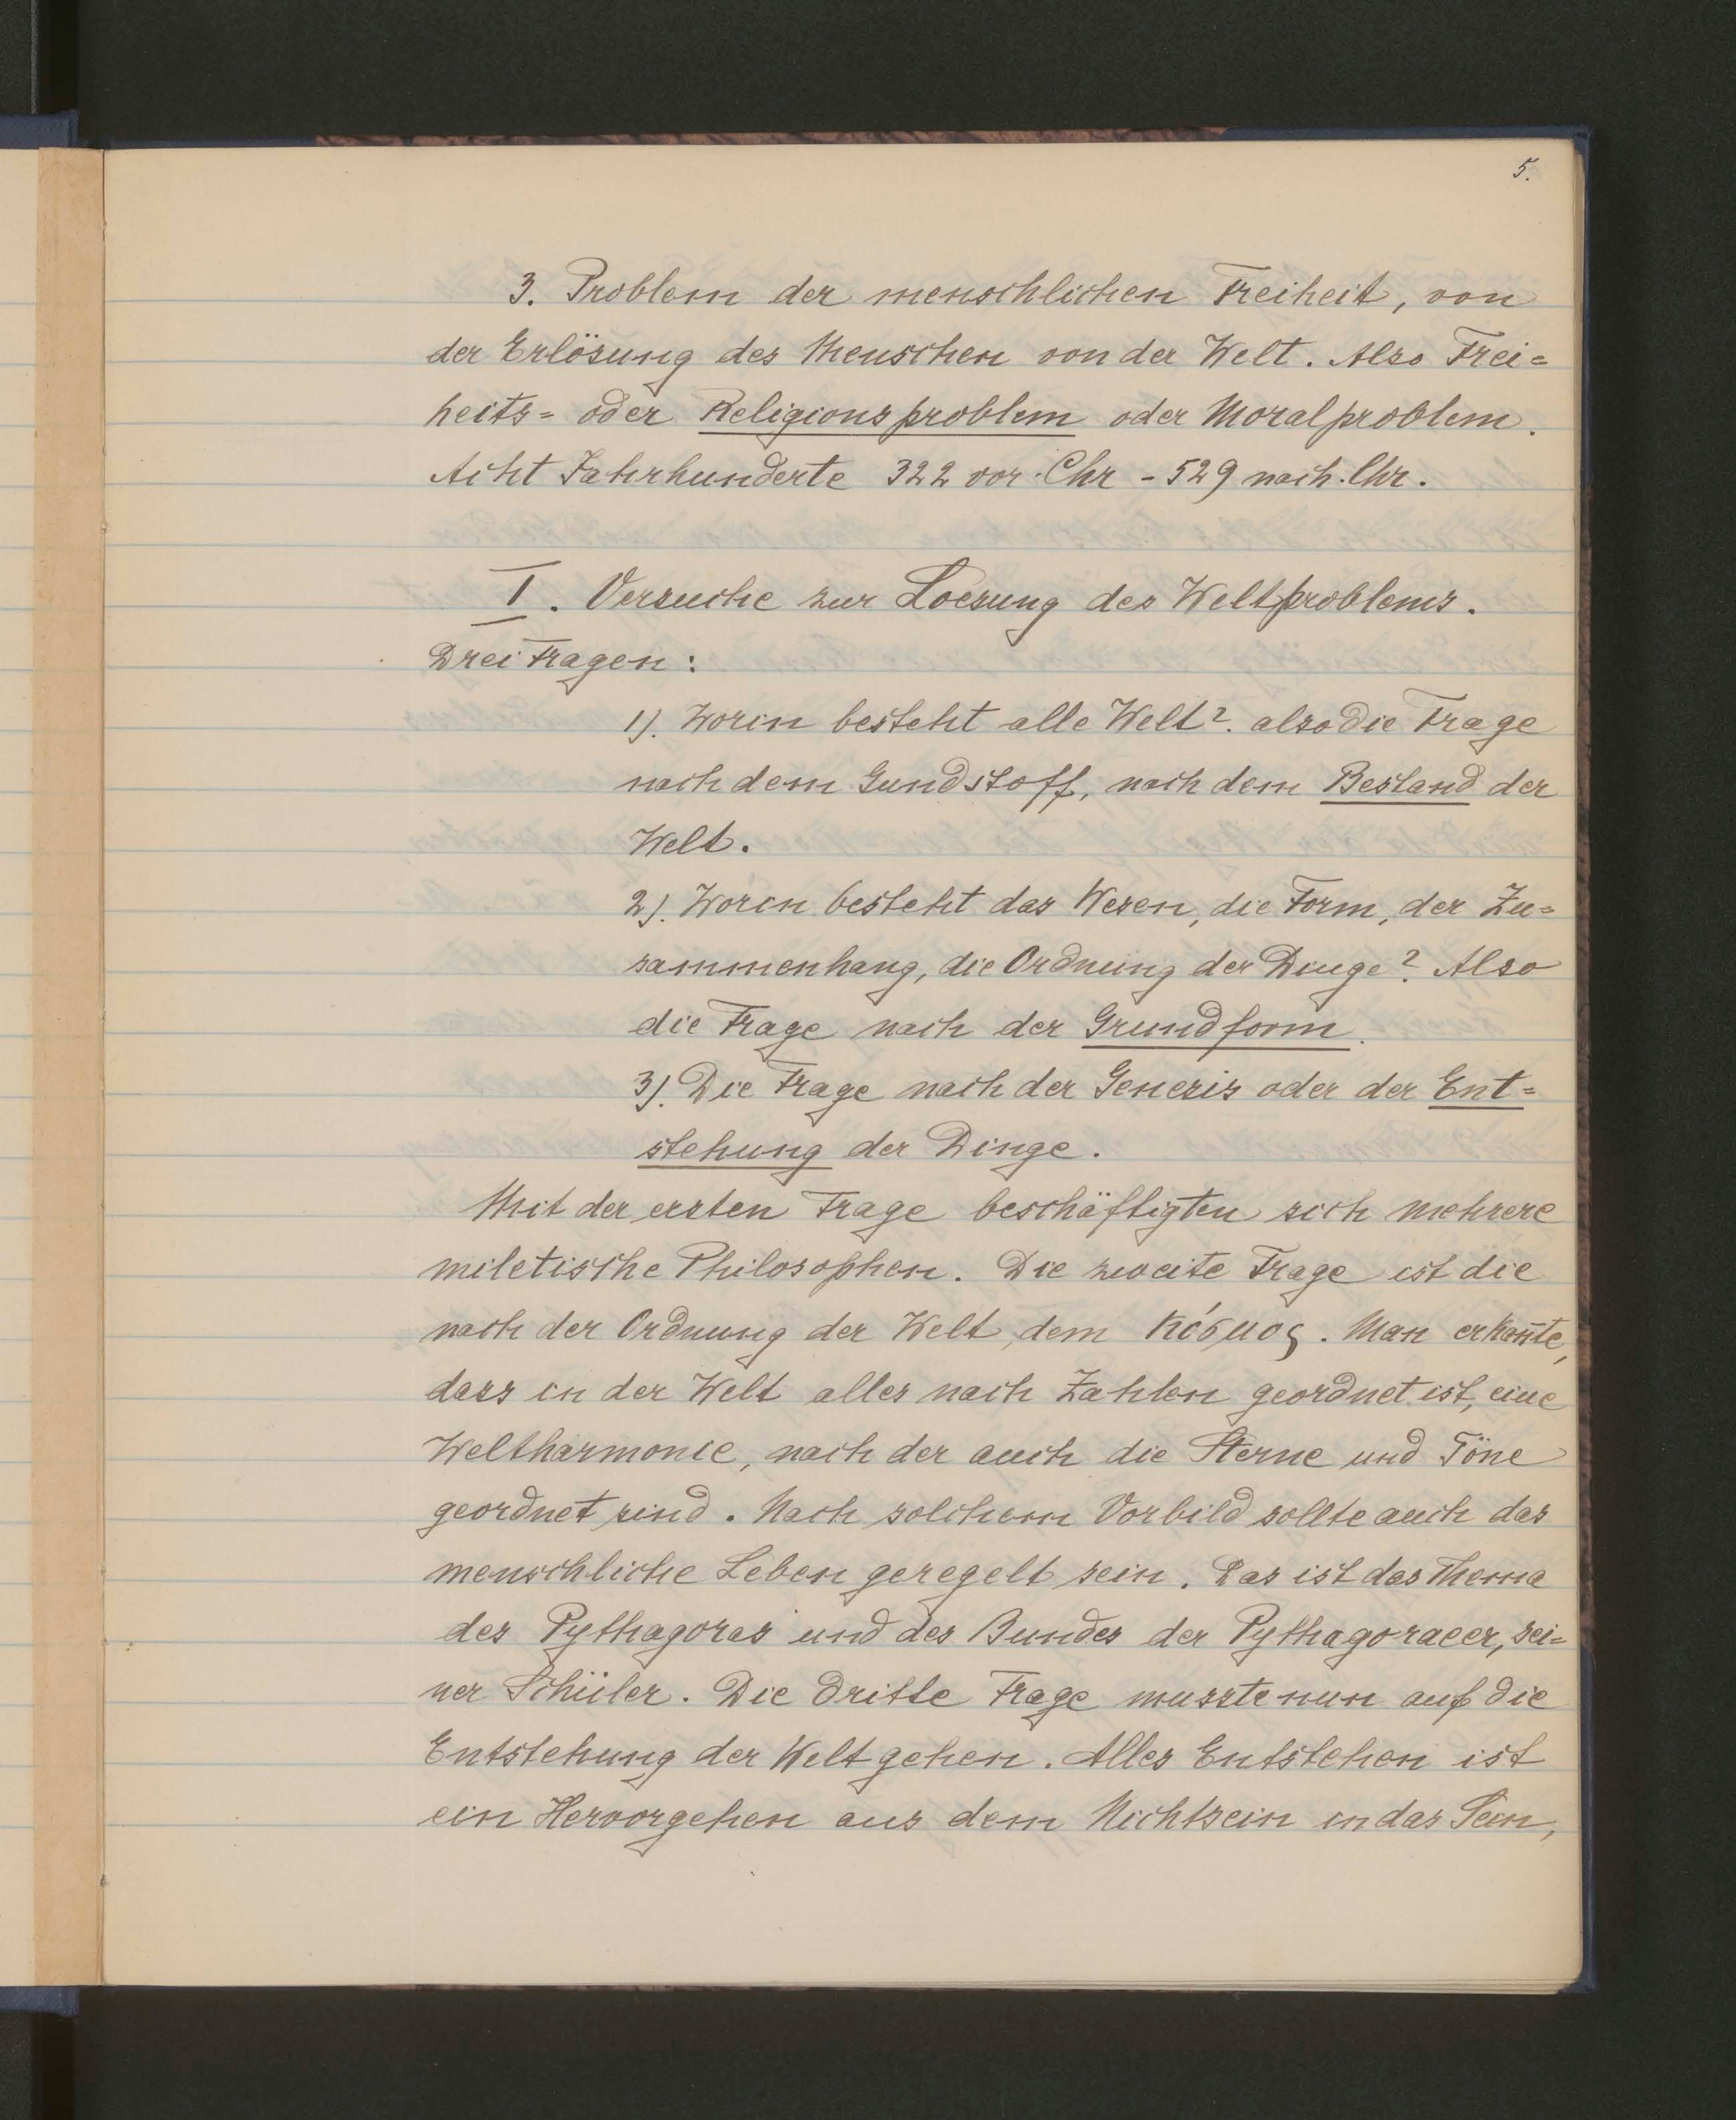 5.
3. Problem der menschlichen Freiheit, von
der Erlösung des Menschen von der Welt. Also Frei=
heits= oder Religionsproblem oder Moralproblem.
Acht Jahrhunderte 322 vor. Chr - 529 nach. Chr.
I. Versuche zur Loesung des Weltproblems.
Drei Fragen:
1). Worin besteht alle Welt? also die Frage
nach dem Gundstoff, nach dem Bestand der
Welt.
2). Worin besteht das Wesen, die Form, der Zu=
sammenhang, die Ordnung der Dinge? Also
die Frage nach der Grundform.
3). Die Frage nach der Genesis oder der Ent=
stehung der Dinge.
Mit der ersten Frage beschäftigten sich mehrere
miletische Philosophen. Die zweite Frage ist die
nach der Ordnung der Welt, dem κόσμος. Man erkan̄te,
dass in der Welt alles nach Zahlen geordnet ist, eine
Weltharmonie, nach der auch die Sterne und Töne
geordnet sind. Nach solchem Vorbild sollte auch das
menschliche Leben geregelt sein. Das ist das Thema
des Pythagoras und des Bundes der Pythagoraeer, sei=
ner Schüler. Die dritte Frage musste nun auf die
Entstehung der Welt gehen. Alles Entstehen ist
ein Hervorgehen aus dem Nichtsein in das Sein,